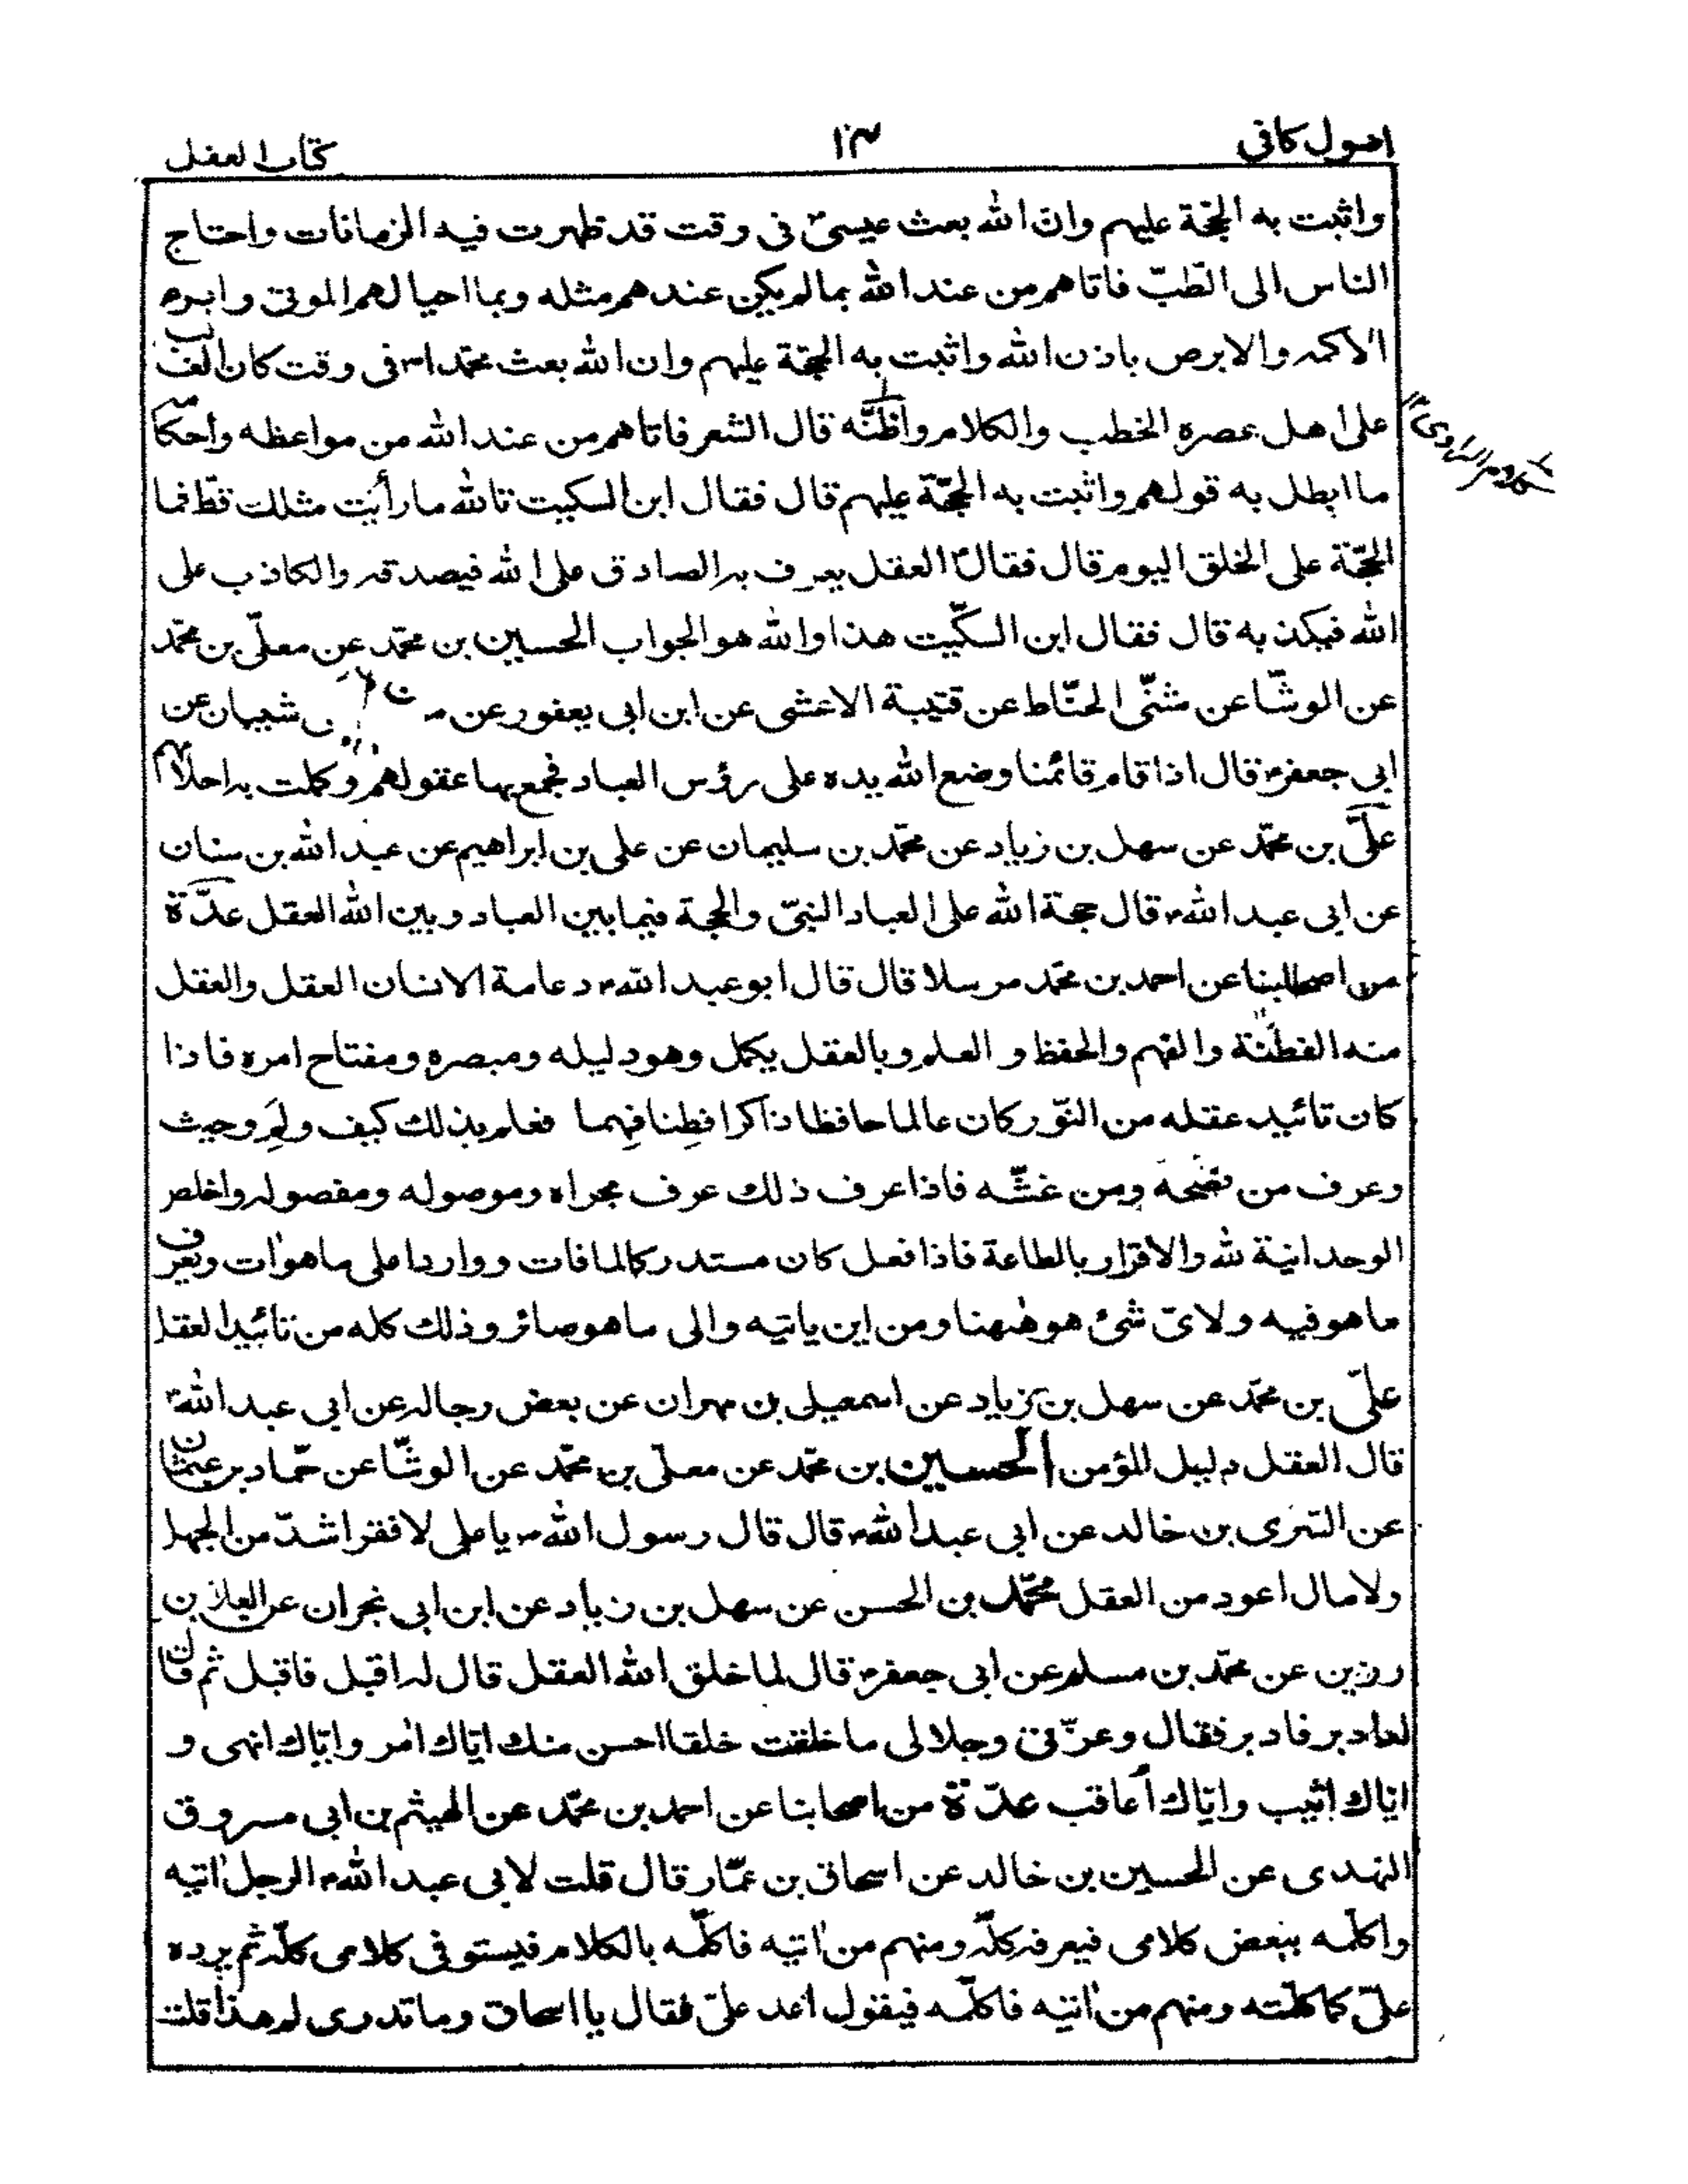 اصول کافی
۱۳
کتاب العقل
واثبت به الحجّة عليهم وان الله بعث عيسى ع فى وقت قد ظهرت فيه الزمانات واحتاج
الناس الى الطّبّ فاتاهم من عند الله بما لم يكن عندهم مثله وبما احيا لهم الموتى وابرء
الاكمه والابرص باذن الله واثبت به الحجّة عليهم وان الله بعث محمّدا ص فى وقت كان الغالب
على اهل عصره الخطب والكلام واظنّه قال الشعر فاتاهم من عند الله من مواعظه واحكامه
ما ابطل به قولهم واثبت به الحجّة عليهم قال فقال ابن السكيت تالله ما رأيت مثلك قطّ فما
الحجّة على الخلق اليوم قال فقال ع العقل يعرف به الصادق على الله فيصدقه والكاذب على
الله فيكذبه قال فقال ابن السكّيت هذا والله هو الجواب الحسين بن محمّد عن معلّى بن محمّد
عن الوشّا عن مثنّى الحنّاط عن قتيبة الاعشى عن ابن ابى يعفور عن شيبان عن
ابى جعفر ع قال اذا قام قائمنا وضع الله يده على رؤس العباد فجمع بها عقولهم وكملت به احلامهم
علىّ بن محمّد عن سهل بن زياد عن محمّد بن سليمان عن على بن ابراهيم عن عبد الله بن سنان
عن ابى عبد الله ع قال حجة الله على العباد النبىّ والحجة فيما بين العباد وبين الله العقل عدّة
من اصحابنا عن احمد بن محمّد مرسلا قال قال ابو عبد الله ع دعامة الانسان العقل والعقل
منه الفطنة والفهم والحفظ و العلم وبالعقل يكمل وهو دليله ومبصره ومفتاح امره فاذا
كان تائيد عقله من النّور كان عالما حافظا ذاكرا فطِنا فهما فعلم بذلك كيف ولِمَ وحيث
وعرف من نصحه ومن غشّه فاذا عرف ذلك عرف مجراه وموصوله ومفصوله واخلص
الوحدانية لله والاقرار بالطاعة فاذا فعل كان مستدركا لما فات وواردا على ما هو ات ويعرف
ما هو فيه ولاىّ شئ هو ههنا ومن اين ياتيه والى ما هو صائر وذلك كله من تائيد العقل
علىّ بن محمّد عن سهل بن زياد عن اسمعيل بن مهران عن بعض رجاله عن ابى عبد الله ع
قال العقل دليل المؤمن الحسين بن محمّد عن معلّى بن محمّد عن الوشّا عن حمّاد بن عثمان
عن السّرى بن خالد عن ابى عبد الله ع قال قال رسول الله ص يا على لا فقر اشدّ من الجهل
ولا مال اعود من العقل محمّد بن الحسن عن سهل بن زياد عن ابن ابى نجران عن العلاء بن
رزين عن محمّد بن مسلم عن ابى جعفر ع قال لما خلق الله العقل قال له اقبل فاقبل ثم قال
له ادبر فادبر فقال وعزّتى وجلالى ما خلقت خلقا احسن منك ايّاك امر وايّاك انهى و
ايّاك اثيب وايّاك أعاقب عدّة من اصحابنا عن احمد بن محمّد عن الهيثم بن ابى مسروق
النهدى عن الحسين بن خالد عن اسحاق بن عمّار قال قلت لابى عبد الله ع الرجل اتيه
واكلّمه ببعض كلامى فيعرفه كلّه ومنهم من اتيه فاكلّمه بالكلام فيستوفى كلامى كلّه ثم يرده
علىّ كما كلّمته ومنهم من اتيه فاكلّمه فيقول اعد علىّ فقال يا اسحاق وما تدرى لم هذا قلت